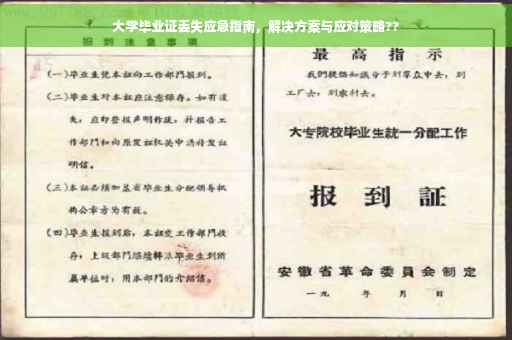 大学毕业证丢失应急指南，解决方案与应对策略??
报到注意事项
(一)毕业生凭本证向工作部门报到。
(二)毕业生对本证应注意保存。如有遗
失，应即登报声明作废，并报告工
作部门和向原发证机关申请补发证
明信。
(三)本证必须加盖省毕业生分配领导机
构公章方为有效。
(四)毕业生报到后，本证交工作部门收
存；上级部门继续转派毕业生到所
属单位时，用本部门的介绍信。
最高指示
我们提倡知识分子到群众中去，到
工厂去，到农村去。
大专院校毕业生統一分配工作
报到証
安徽省革命委員会制定
一九 年 月 日